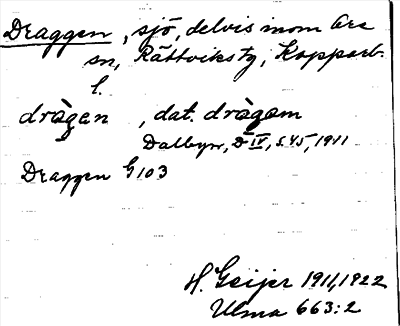 Draggen, sjö, delvis inom Ore
sn, Rättviks tg, Kopparb.
l.
dràgen, dat. dràgam
Dalbyn, D IV, s. 45, 1911
Draggen G 103
H. Geijer 1911, 1922
Ulma 663:2